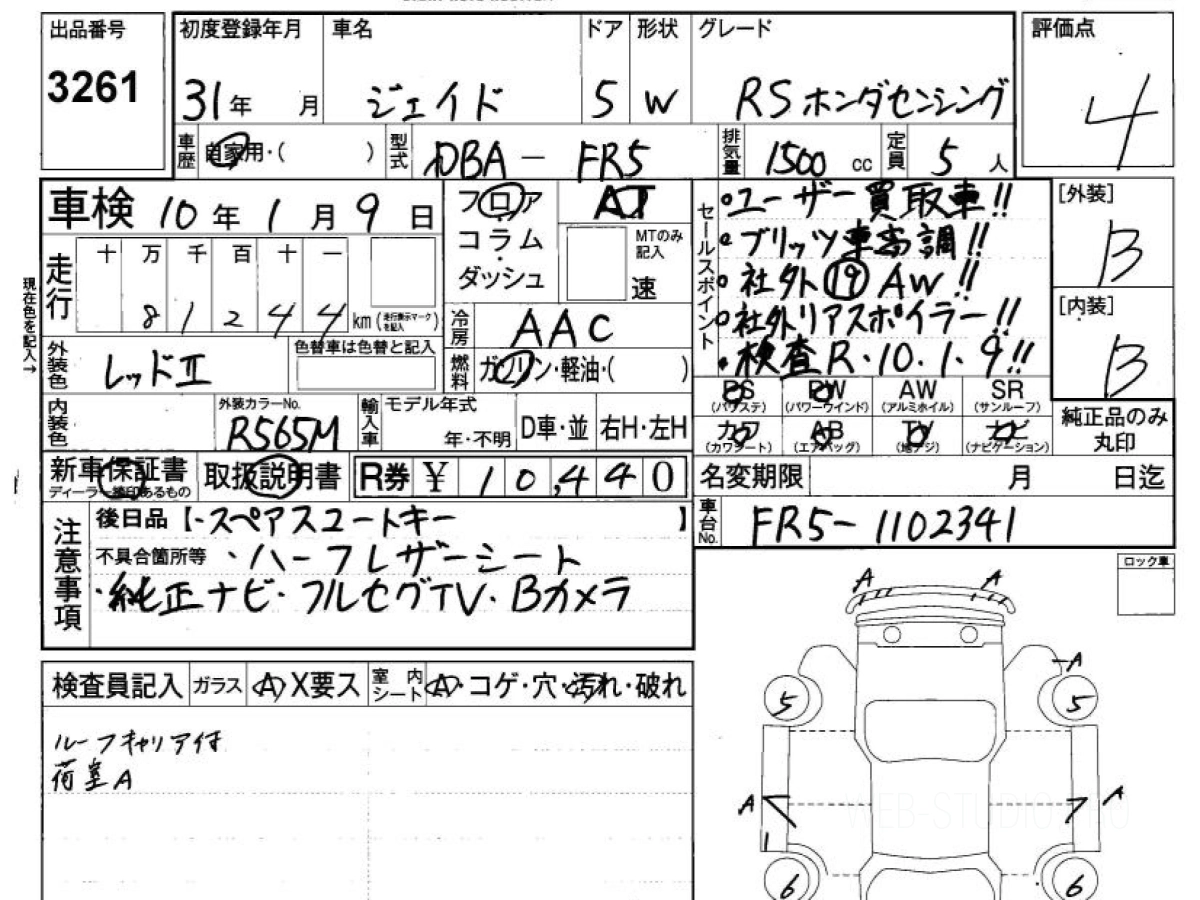 出品番号 初度登録年月 車名 ドア 形状 グレード 評価点
3261 31年 月 ジェイド 5 W RSホンダセンシング 4
車歴 自家用・( ) 型式 DBA - FR5 排気量 1500 cc 定員 5 人
車検 10年 1月 9日
フロア AT
コラム
ダッシュ
MTのみ記入
速
セールスポイント
・ユーザー買取車!!
・ブリッツ車高調!!
・社外⑲AW!!
・社外リアスポイラー!!
・検査R.10.1.9!!
[外装]
B
[内装]
B
現在色を記入→
走行 十 万 千 百 十 一
8 1 2 4 4 km (走行表示マークを記入)
冷房 AAC
外装色 レッドII 色替車は色替と記入
燃料 ガソリン・軽油・( )
PS PW AW SR
(パワステ) (パワーウインド) (アルミホイル) (サンルーフ)
カワ AB TV ナビ
(カワシート) (エアバッグ) (地デジ) (ナビゲーション)
純正品のみ
丸印
内装色 外装カラーNo. R565M 輸入車 モデル年式 年・不明 D車・並 右H・左H
新車保証書 取扱説明書 R券 ¥ 10,440
名変期限 月 日迄
車台No. FR5-1102341
注意事項
後日品【・スペアスマートキー 】
不具合箇所等 ・ハーフレザーシート
・純正ナビ・フルセグTV・Bカメラ
ロック車
検査員記入 ガラス A X要ス 室内シート A・コゲ・穴・汚れ・破れ
ルーフキャリア付
荷室A
A A
A
5 5
A A
1
6 6
WEB-STUDIO.PRO